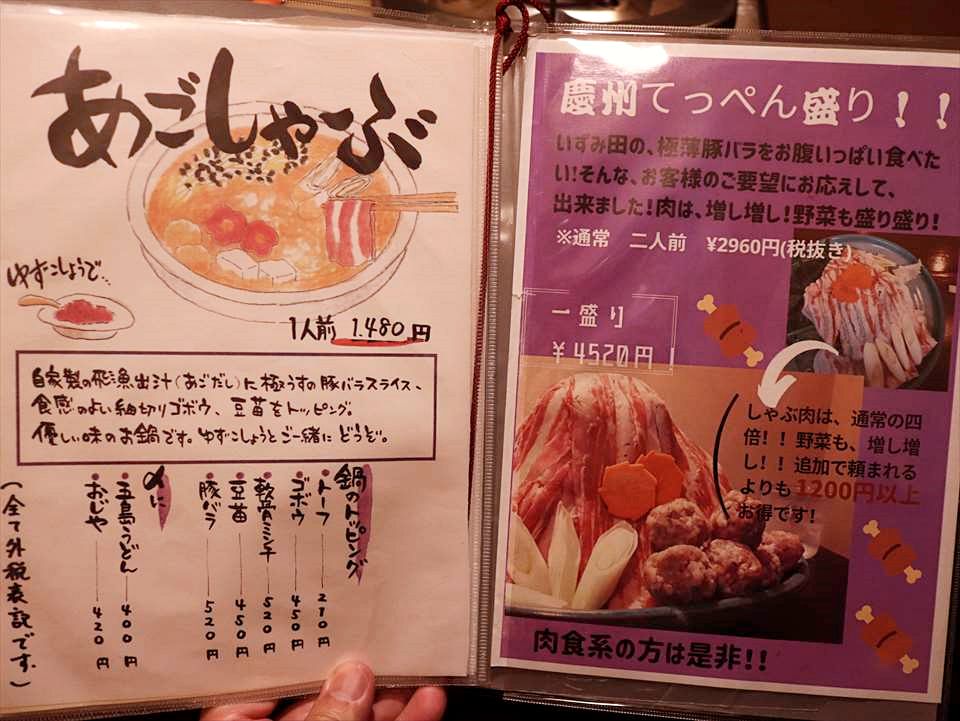 あごしゃぶ
ゆずこしょうで…
1人前 1.480円
自家製の飛魚出汁(あごだし)に極うすの豚バラスライス、
食感のよい細切りゴボウ、豆苗をトッピング。
優しい味のお鍋です。ゆずこしょうとご一緒にどうぞ。
鍋のトッピング
・トーフ 210円
・ゴボウ 450円
・軟骨ミンチ 520円
・豆苗 450円
・豚バラ 520円
〆に
・五島うどん 400円
・おじや 420円
(全て外税表記です。)
慶州てっぺん盛り!!
いずみ田の、極薄豚バラをお腹いっぱい食べた
い!そんな、お客様のご要望にお応えして、
出来ました!肉は、増し増し!野菜も盛り盛り!
※通常 二人前 ¥2960円(税抜き)
一盛り
¥4520円
しゃぶ肉は、通常の四
倍!!野菜も、増し増
し!!追加で頼まれる
よりも1200円以上
お得です!
肉食系の方は是非!!